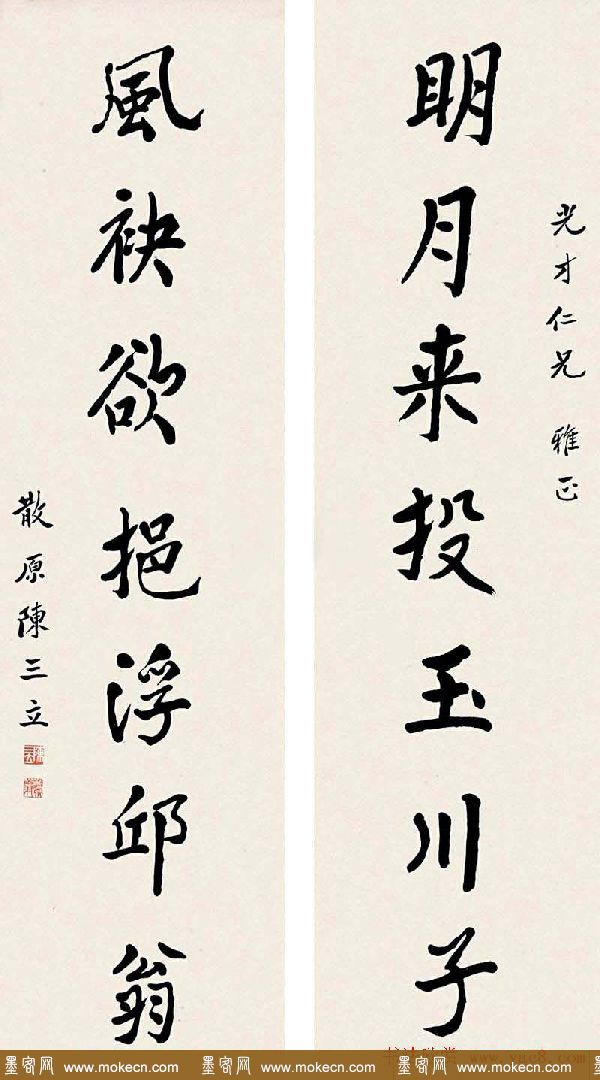 光才仁兄 雅正
明月来投玉川子
風袂欲挹浮邱翁
散原陳三立
墨客网 www.mokecn.com 墨客网 www.mokecn.com 墨客网 www.mokecn.com
www.yac8.com